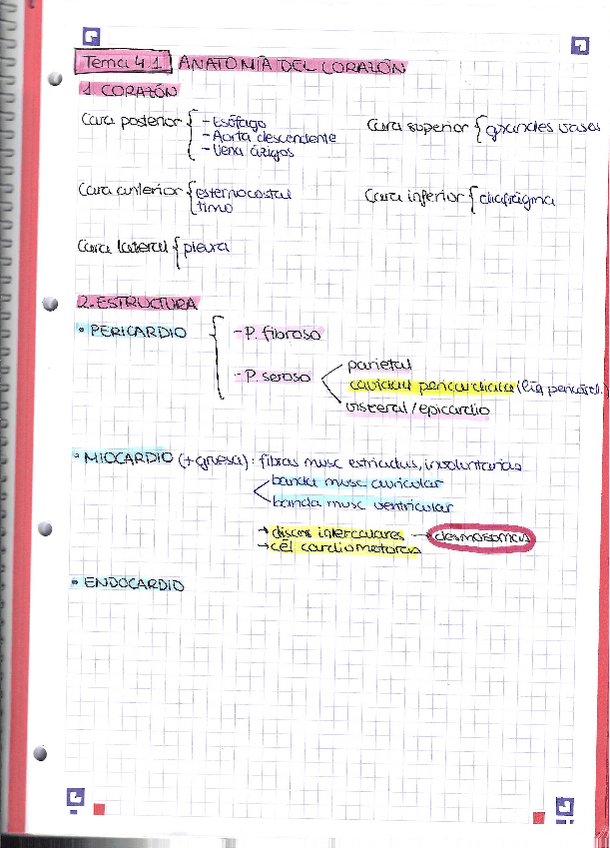 Tema 41 ANATOMÍA DEL CORAZÓN
1 CORAZÓN
Cara posterior { - Esófago
- Aorta descendente
- Vena ázigos
Cara superior { grandes vasos
Cara anterior { esternocostal
timo
Cara inferior { diafragma
Cara lateral { pleura
2. ESTRUCTURA
• PERICARDIO { - P. fibroso
- P. seroso < parietal
cavidad pericardiaca (líq pericárd.)
visceral / epicardio
• MIOCARDIO (+ gruesa): fibras musc estriadas, involuntarias
< banda musc auricular
banda musc ventricular
→ discos intercalares → desmosomas
→ cél cardiomotoras
• ENDOCARDIO